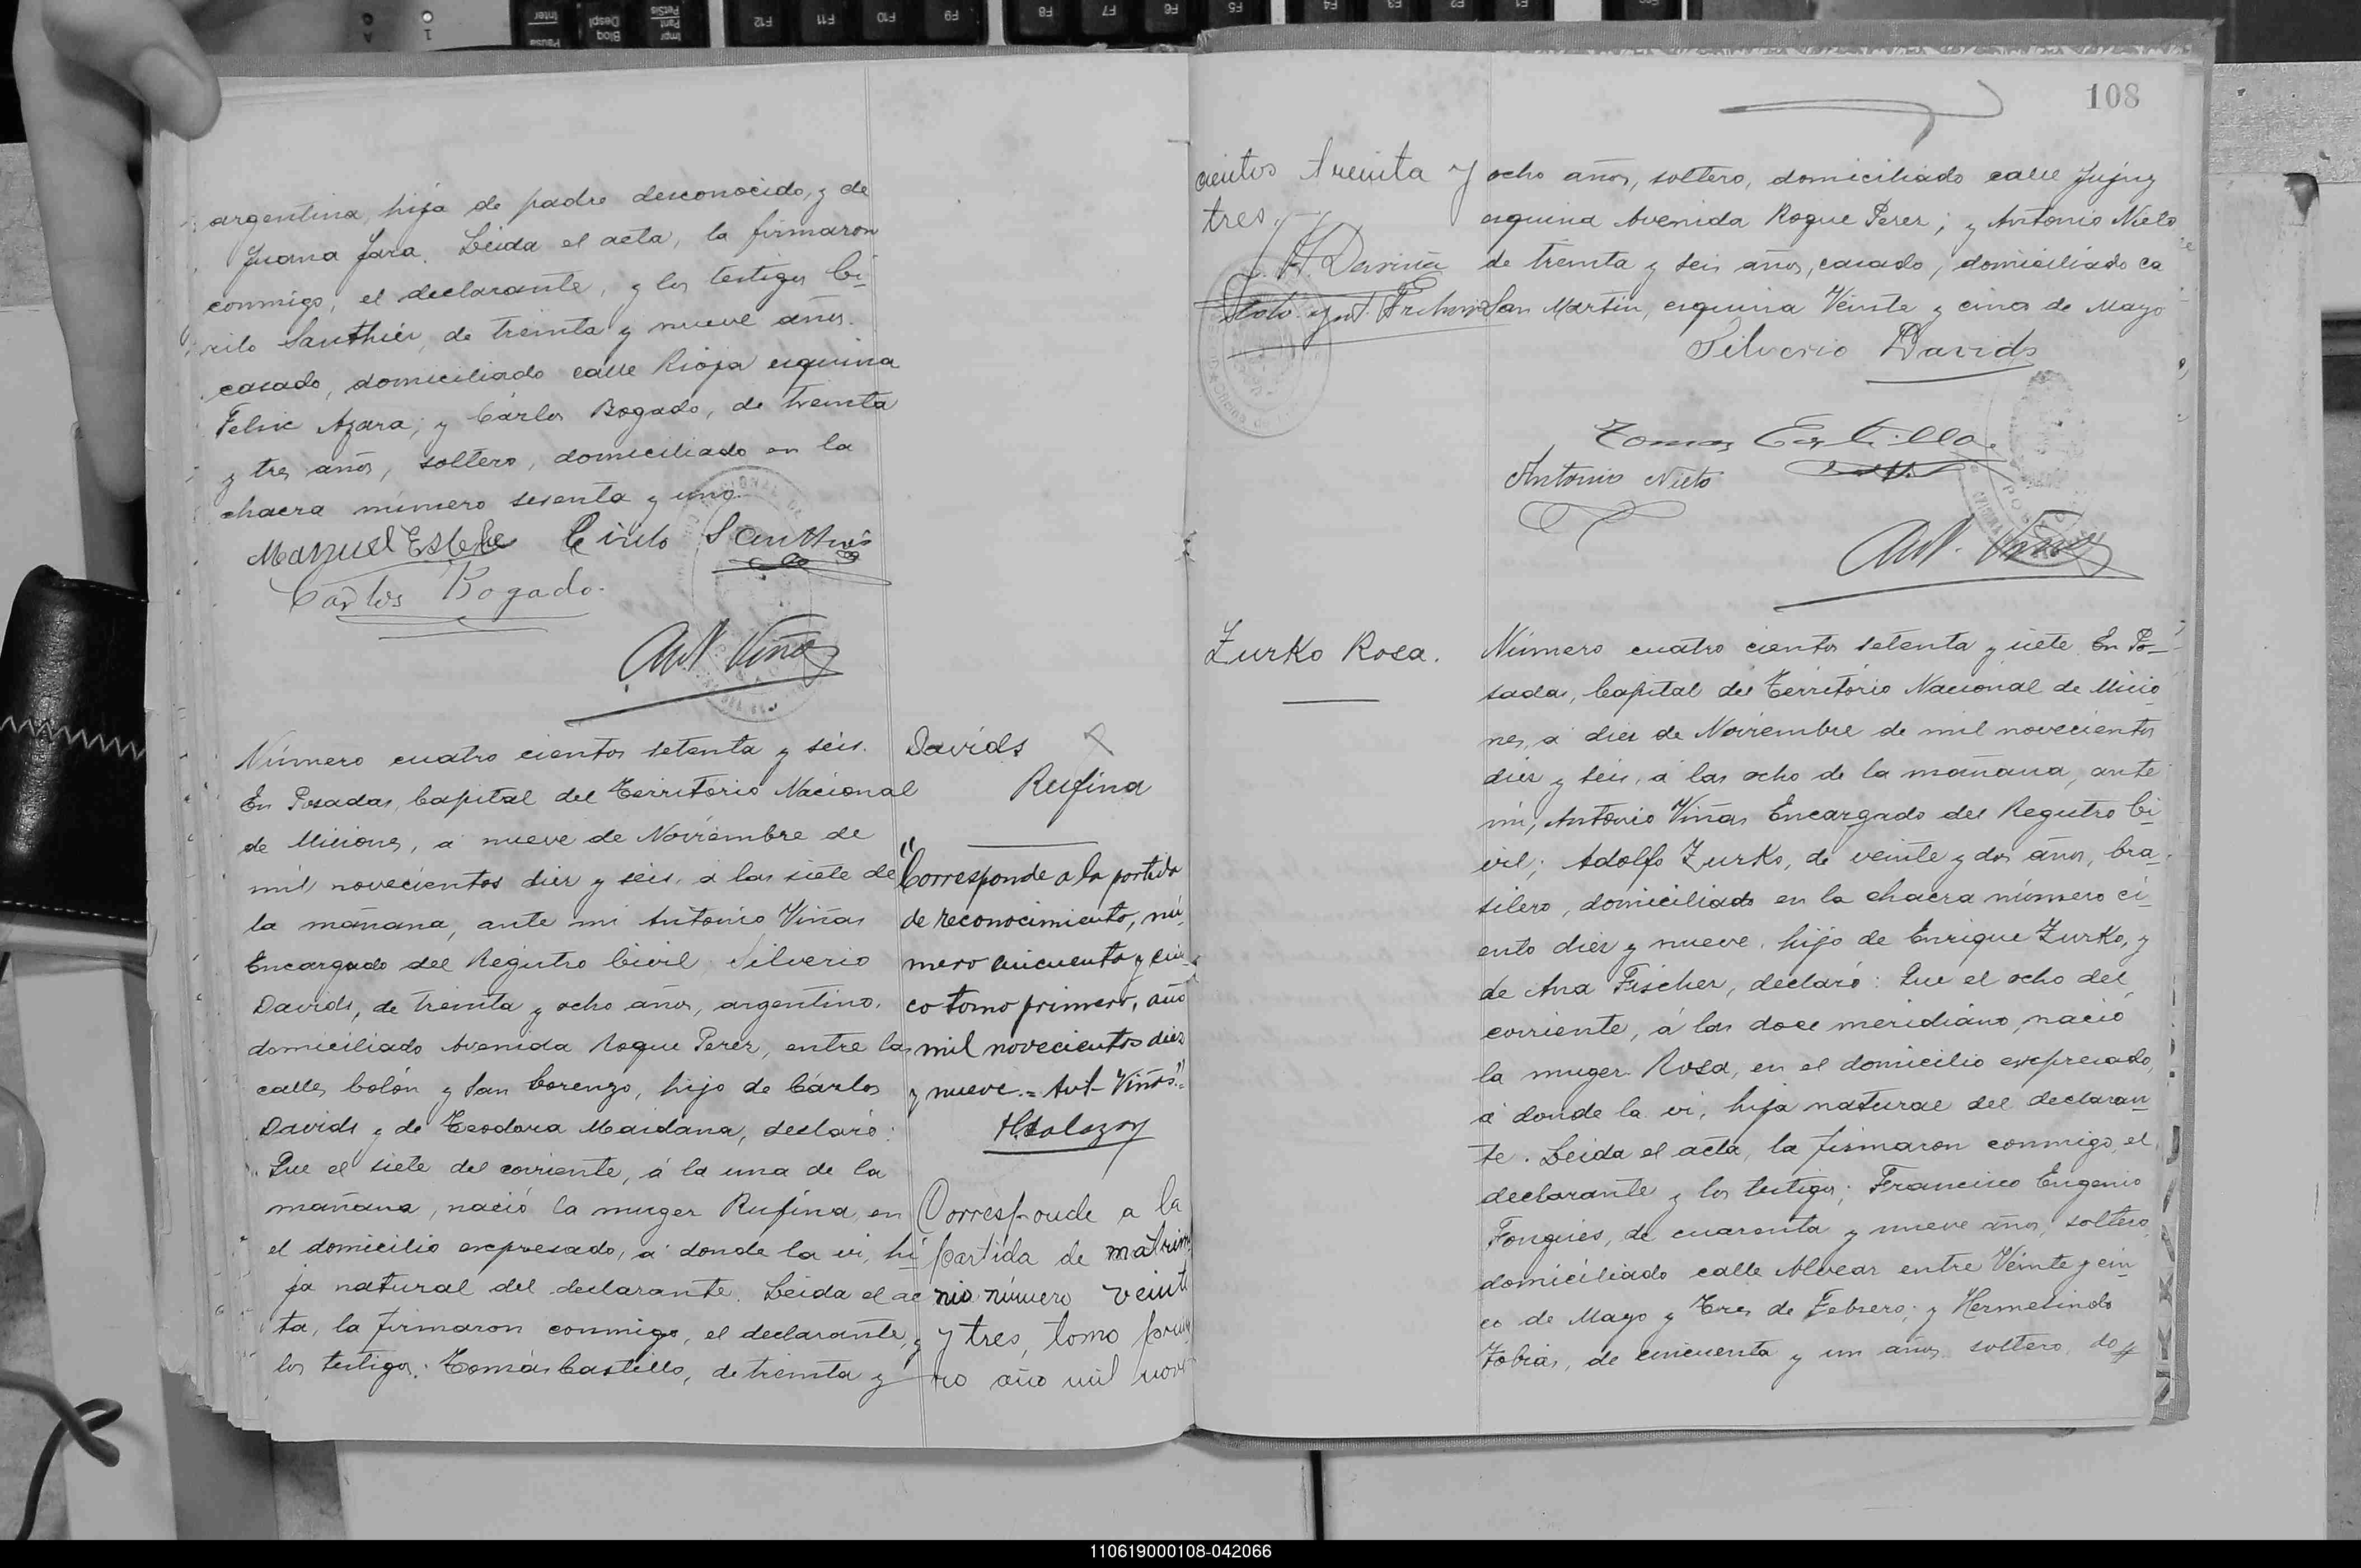 argentina, hija de padre desconocido, y de
Juana Jara. Leida el acta, la firmaron
conmigo, el declarante, y los testigos Ci-
rilo Santhier, de treinta y nueve años.
casado, domiciliado calle Rioja esquina
Felix Azara; y Cárlos Bogado, de treinta
y tres años, soltero, domiciliado en la
chacra número sesenta y uno.
Manuel Cirilo
Carlos Bogado.
Ant. Viñas
Número cuatro cientos setenta y séis.
En Posadas, Capital del Territorio Nacional
de Misiones, á nueve de Noviembre de
mil novecientos diez y seis, á las siete de
la mañana, ante mi Antonio Viñas
Encargado del Registro Civil Silverio
Davids, de treinta y ocho años, argentino,
domiciliado Avenida Roque Perez, entre las
calles Colón y San Lorenzo, hijo de Cárlos
Davids y de Teodora Maidana, declaró:
Que el siete del corriente, á la una de la
mañana, nació la muger Rufina, en
el domicilio expresado, á donde la vi, hi-
ja natural del declarante. Leida el ac
ta, la firmaron conmigo, el declarante, y
los testigos: Tomás Castillo, de treinta y
Davids
Rufina
"Corresponde a la partida
de reconocimiento, nú-
mero cincuenta y cin-
co tomo primero, año
mil novecientos diez
y nueve.= Ant- Viñas"=
Corresponde a la
partida de matrimo
nio número veinti
y tres, tomo prime
ro año mil nove
108
cientos treinta y
tres.
ocho años, soltero, domiciliado calle Jujuy
esquina Avenida Roque Perez; y Antonio Nieto
de treinta y seis años, casado, domiciliado ca
San Martin, esquina Veinte y cinco de Mayo
Silverio Davids
Tomas Castillo
Antonio Nieto
Ant. Viñas
Zurko Rosa.
Número cuatro cientos setenta y siete. En Po-
sadas, Capital del Territorio Nacional de Misio
nes, á diez de Noviembre de mil novecientos
diez y seis, á las ocho de la mañana, ante
mi, Antonio Viñas Encargado del Registro Ci-
vil; Adolfo Zurko, de veinte y dos años, bra-
silero, domiciliado en la chacra número ci-
ento diez y nueve, hijo de Enrique Zurko, y
de Ana Fischer, declaró: Que el ocho del
corriente, á las doce meridiano, nació
la muger Rosa, en el domicilio expresado,
á donde la vi, hija natural del declaran
te. Leida el acta, la firmaron conmigo, el
declarante y los testigos; Francisco Eugenio
de cuarenta y nueve años, soltero,
domiciliado calle Alvear entre Veinte y cin
co de Mayo y Tres de Febrero; y Hermelindo
Tobias, de cincuenta y un años soltero, do
110619000108-042066